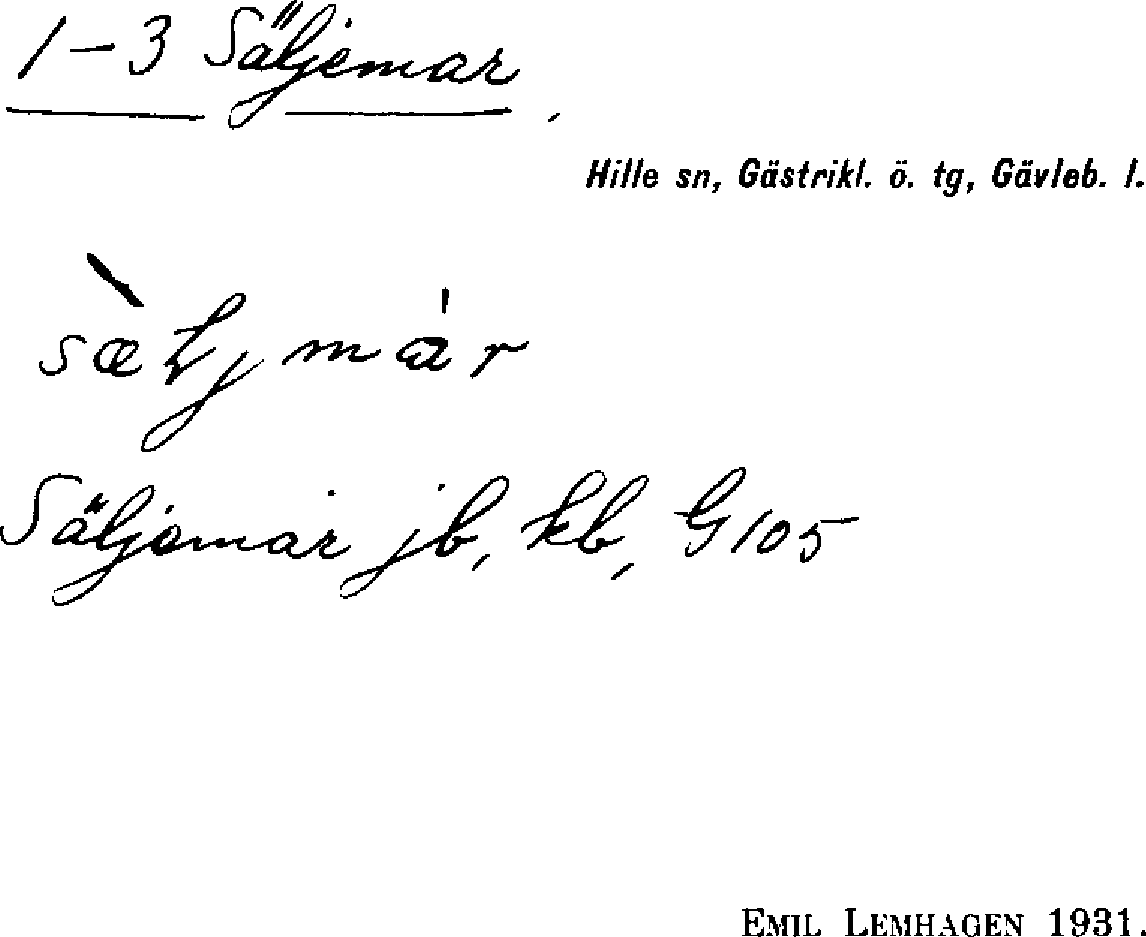 1-3 Säljemar
Hille sn, Gästrikl. ö. tg, Gävleb. l.
sæ̀ljmár
Säljemar jb, kb, G105
EMIL LEMHAGEN 1931.